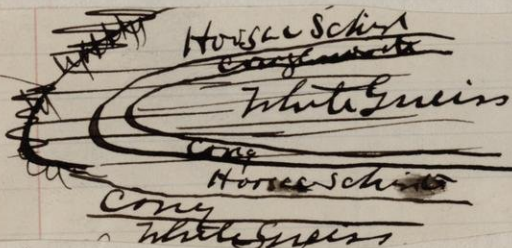 Hoosac Schist
Conglomerate
White Gneiss
Cong
Hoosac Schist
Cong
White Gneiss